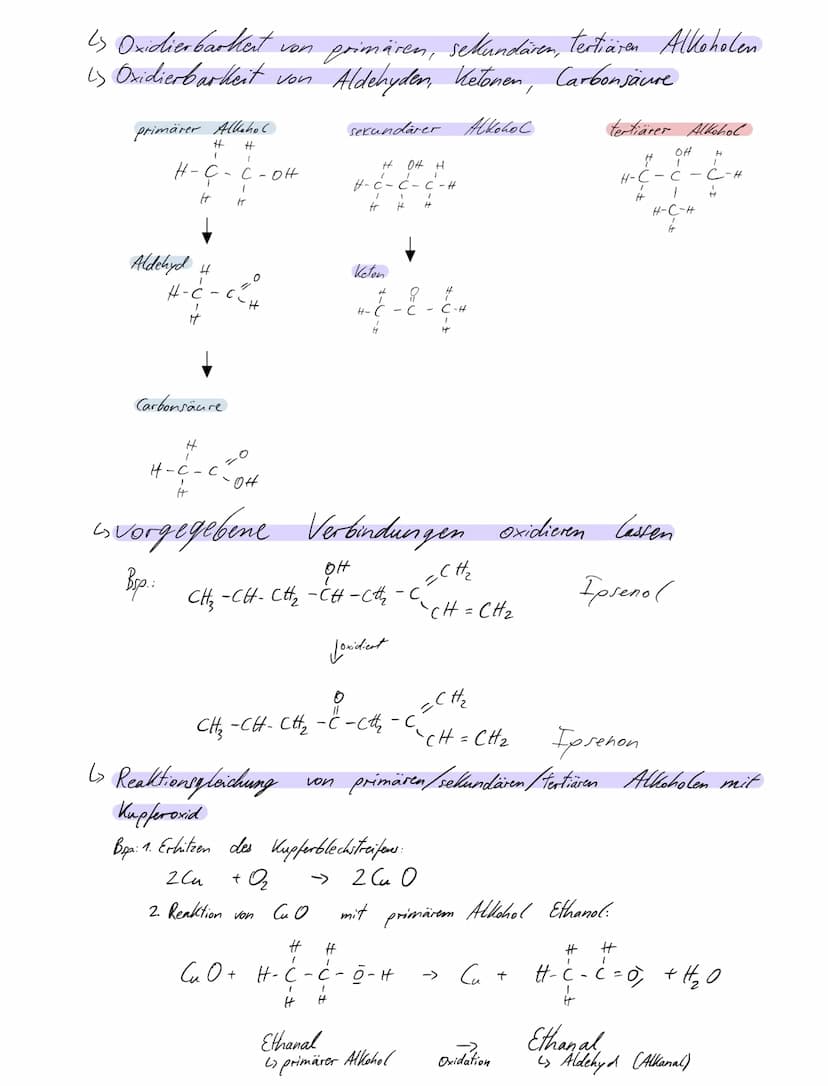 ↳ Oxidierbarkeit von primären, sekundären, tertiären Alkoholen
↳ Oxidierbarkeit von Aldehyden, Ketonen, Carbonsäure
primärer Alkohol sekundärer Alkohol tertiärer Alkohol
H H
H-C-C-OH
H H
H OH H
H-C-C-C-H
H H H
H OH H
H-C-C-C-H
H H
H-C-H
H
Aldehyd
H
H-C-C=O
H
H
Keton
H O H
H-C-C-C-H
H H
Carbonsäure
H
H-C-C=O
OH
H
↳ vorgegebene Verbindungen oxidieren lassen
Bsp.:
OH
CH₃-CH-CH₂-CH-CH₂-C=CH₂
CH=CH₂
Ipsenol
↓ oxidiert
O
CH₃-CH-CH₂-C-CH₂-C=CH₂
CH=CH₂
Ipsenon
↳ Reaktionsgleichung von primären/sekundären/tertiären Alkoholen mit
Kupferoxid
Bsp: 1. Erhitzen des Kupferblechstreifens:
2Cu + O₂ → 2CuO
2. Reaktion von CuO mit primärem Alkohol Ethanol:
H H H H
CuO + H-C-C-O-H → Cu + H-C-C=O, + H₂O
H H H
Ethanal Ethanal
↳ primärer Alkohol → Oxidation ↳ Aldehyd (Alkanal)